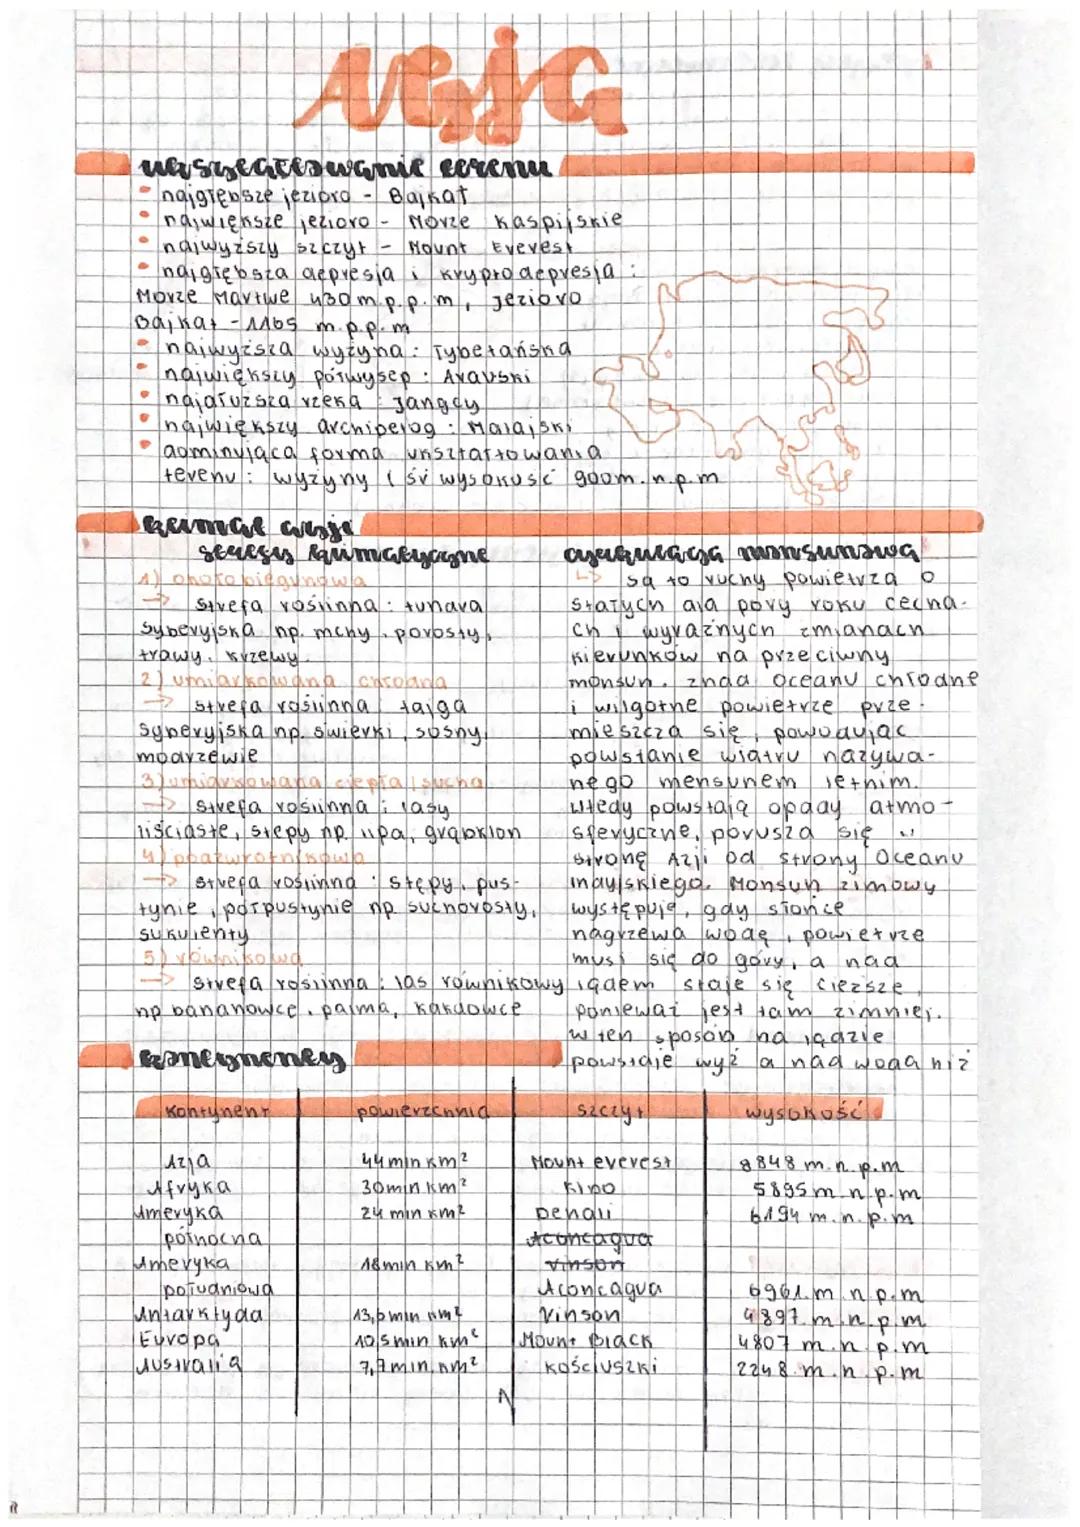 Azja
ukształtowanie terenu
• najgłębsze jezioro - Bajkał
• największe jezioro - Morze Kaspijskie
• najwyższy szczyt - Mount Everest
• najgłębsza depresja i kryptodepresja :
Morze Martwe 430 m.p.p.m, jezioro
Bajkał - 1165 m.p.p.m
• najwyższa wyżyna : Tybetańska
• największy półwysep : Arabski
• najdłuższa rzeka : Jangcy
• największy archipelog : Malajski
• dominująca forma ukształtowania
terenu : wyżyny ( śr wysokość 900m.n.p.m
klimat azji
strefy klimatyczne
1) okołobiegunowa
→ strefa roślinna : tundra
syberyjska np. mchy, porosty,
trawy, krzewy
2) umiarkowana chłodna
→ strefa roślinna : tajga
syberyjska np. świerki, sosny,
modrzewie
3) umiarkowana ciepła / sucha
→ strefa roślinna : lasy
liściaste, stepy np. lipa, grąbklon
4) podzwrotnikowa
→ strefa roślinna : stępy, pus-
tynie, półpustynie np. suchorosty,
sukulenty
5) równikowa
→ strefa roślinna : las równikowy
np bananowce, palma, kakaowce
cyrkulacja monsunowa
↳ są to ruchy powietrza o
stałych dla pory roku cecha-
ch i wyraźnych zmianach
kierunków na przeciwny
monsun. znad oceanu chłodne
i wilgotne powietrze prze-
mieszcza się, powodując
powstanie wiatru nazywa-
nego mensunem letnim.
wtedy powstają opady atmo-
sferyczne, porusza się w
stronę Azji od strony Oceanu
indyjskiego. Monsun zimowy
występuje, gdy słońce
nagrzewa wodę, powietrze
musi się do góry, a nad
lądem staje się cięższe,
ponieważ jest tam zimniej.
w ten sposób na lądzie
powstaje wyż a nad wodą niż
kontynenty
kontynent powierzchnia szczyt wysokość
Azja 44 mln km² Mount everest 8848 m.n.p.m
Afryka 30 mln km² Kibo 5895 m.n.p.m
Ameryka 24 mln km² Denali 6194 m.n.p.m
północna Aconcagua
Ameryka 18 mln km² Vinson
południowa Aconcagua 6961.m.n.p.m
Antarktyda 13,6 mln km² Vinson 4897.m.n.p.m
Europa 10,5 mln km² Mount Black 4807 m.n.p.m
Australia 7,7 mln.km² Kościuszki 2248.m.n.p.m